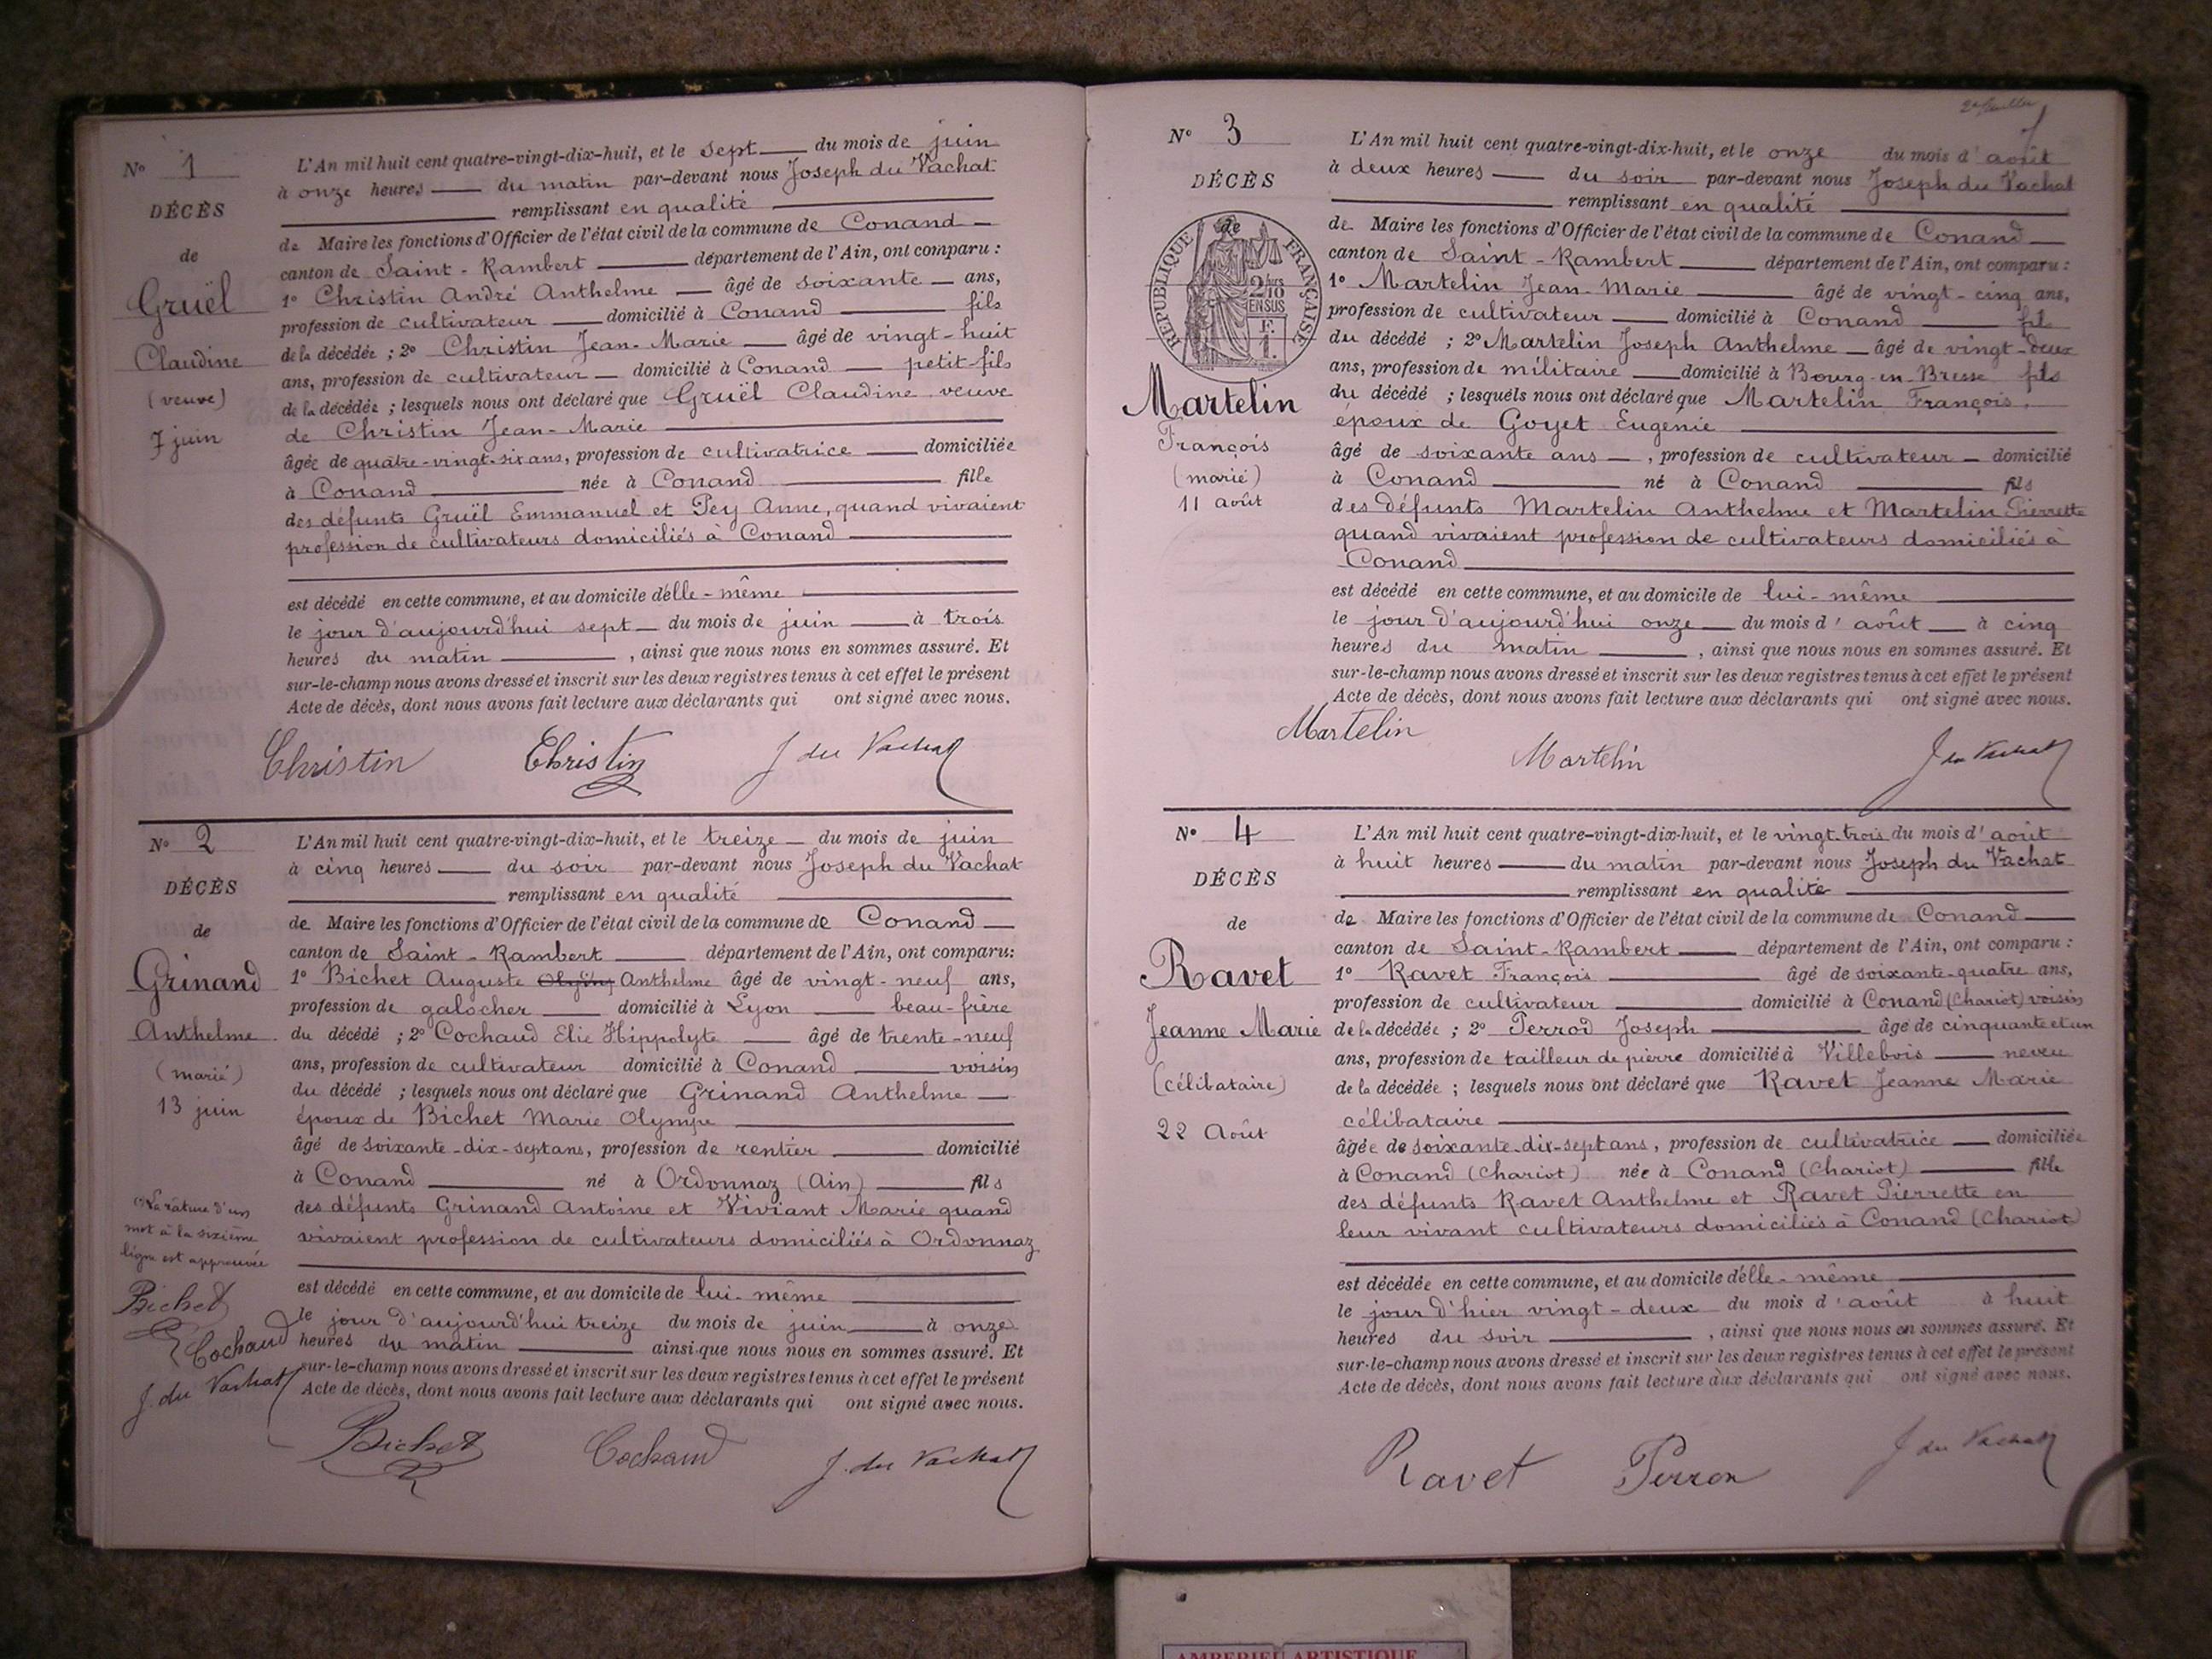 N° 1
DÉCÈS
de
Gruël
Claudine
(veuve)
7 juin
L'An mil huit cent quatre-vingt-dix-huit, et le sept du mois de juin
à onze heures du matin par-devant nous Joseph du Vachat
remplissant en qualité
de Maire les fonctions d'Officier de l'état civil de la commune de Conand
canton de Saint-Rambert département de l'Ain, ont comparu :
1° Christin André Anthelme âgé de soixante ans,
profession de cultivateur domicilié à Conand fils
de la décédée ; 2° Christin Jean-Marie âgé de vingt-huit
ans, profession de cultivateur domicilié à Conand petit-fils
de la décédée ; lesquels nous ont déclaré que Gruël Claudine veuve
de Christin Jean-Marie
âgée de quatre-vingt-six ans, profession de cultivatrice domiciliée
à Conand née à Conand fille
des défunts Gruël Emmanuel et Pey Anne, quand vivaient
profession de cultivateurs domiciliés à Conand
est décédé en cette commune, et au domicile d'elle-même
le jour d'aujourd'hui sept du mois de juin à trois
heures du matin , ainsi que nous nous en sommes assuré. Et
sur-le-champ nous avons dressé et inscrit sur les deux registres tenus à cet effet le présent
Acte de décès, dont nous avons fait lecture aux déclarants qui ont signé avec nous.
Christin Christin J du Vachat
N° 2
DÉCÈS
de
Grinand
Anthelme
(marié)
13 juin
L'An mil huit cent quatre-vingt-dix-huit, et le treize du mois de juin
à cinq heures du soir par-devant nous Joseph du Vachat
remplissant en qualité
de Maire les fonctions d'Officier de l'état civil de la commune de Conand
canton de Saint-Rambert département de l'Ain, ont comparu :
1° Bichet Auguste Anthelme âgé de vingt-neuf ans,
profession de galocher domicilié à Lyon beau-frère
du décédé ; 2° Cochaud Elie Hippolyte âgé de trente-neuf
ans, profession de cultivateur domicilié à Conand voisin
du décédé ; lesquels nous ont déclaré que Grinand Anthelme
époux de Bichet Marie Olympe
âgé de soixante-dix-sept ans, profession de rentier domicilié
à Conand né à Ordonnaz (Ain) fils
des défunts Grinand Antoine et Viviant Marie quand
vivaient profession de cultivateurs domiciliés à Ordonnaz
est décédé en cette commune, et au domicile de lui-même
le jour d'aujourd'hui treize du mois de juin à onze
heures du matin ainsi que nous nous en sommes assuré. Et
sur-le-champ nous avons dressé et inscrit sur les deux registres tenus à cet effet le présent
Acte de décès, dont nous avons fait lecture aux déclarants qui ont signé avec nous.
La rature d'un
mot à la sixième
ligne est approuvée
Bichet
Cochaud
J. du Vachat
Bichet Cochaud J. du Vachat
2e feuillet
N° 3
DÉCÈS
de
RÉPUBLIQUE FRANÇAISE
2/10
EN SUS
Martelin
François
(marié)
11 août
L'An mil huit cent quatre-vingt-dix-huit, et le onze du mois d'août
à deux heures du soir par-devant nous Joseph du Vachat
remplissant en qualité
de Maire les fonctions d'Officier de l'état civil de la commune de Conand
canton de Saint-Rambert département de l'Ain, ont comparu :
1° Martelin Jean-Marie âgé de vingt-cinq ans,
profession de cultivateur domicilié à Conand fils
du décédé ; 2° Martelin Joseph Anthelme âgé de vingt-deux
ans, profession de militaire domicilié à Bourg-en-Bresse fils
du décédé ; lesquels nous ont déclaré que Martelin François,
époux de Goyet Eugénie
âgé de soixante ans , profession de cultivateur domicilié
à Conand né à Conand fils
des défunts Martelin Anthelme et Martelin Pierrette
quand vivaient profession de cultivateurs domiciliés à
Conand
est décédé en cette commune, et au domicile de lui-même
le jour d'aujourd'hui onze du mois d'août à cinq
heures du matin , ainsi que nous nous en sommes assuré. Et
sur-le-champ nous avons dressé et inscrit sur les deux registres tenus à cet effet le présent
Acte de décès, dont nous avons fait lecture aux déclarants qui ont signé avec nous.
Martelin Martelin J du Vachat
N° 4
DÉCÈS
de
Ravet
Jeanne Marie
(célibataire)
22 Août
L'An mil huit cent quatre-vingt-dix-huit, et le vingt-trois du mois d'août
à huit heures du matin par-devant nous Joseph du Vachat
remplissant en qualité
de Maire les fonctions d'Officier de l'état civil de la commune de Conand
canton de Saint-Rambert département de l'Ain, ont comparu :
1° Ravet François âgé de soixante-quatre ans,
profession de cultivateur domicilié à Conand (Chariot) voisin
de la décédée ; 2° Perrod Joseph âgé de cinquante et un
ans, profession de tailleur de pierre domicilié à Villebois neveu
de la décédée ; lesquels nous ont déclaré que Ravet Jeanne Marie
célibataire
âgée de soixante-dix-sept ans, profession de cultivatrice domiciliée
à Conand (Chariot) née à Conand (Chariot) fille
des défunts Ravet Anthelme et Ravet Pierrette en
leur vivant cultivateurs domiciliés à Conand (Chariot)
est décédée en cette commune, et au domicile d'elle-même
le jour d'hier vingt-deux du mois d'août à huit
heures du soir , ainsi que nous nous en sommes assuré. Et
sur-le-champ nous avons dressé et inscrit sur les deux registres tenus à cet effet le présent
Acte de décès, dont nous avons fait lecture aux déclarants qui ont signé avec nous.
Ravet Perron J du Vachat
AMBERIEU ARTISTIQUE